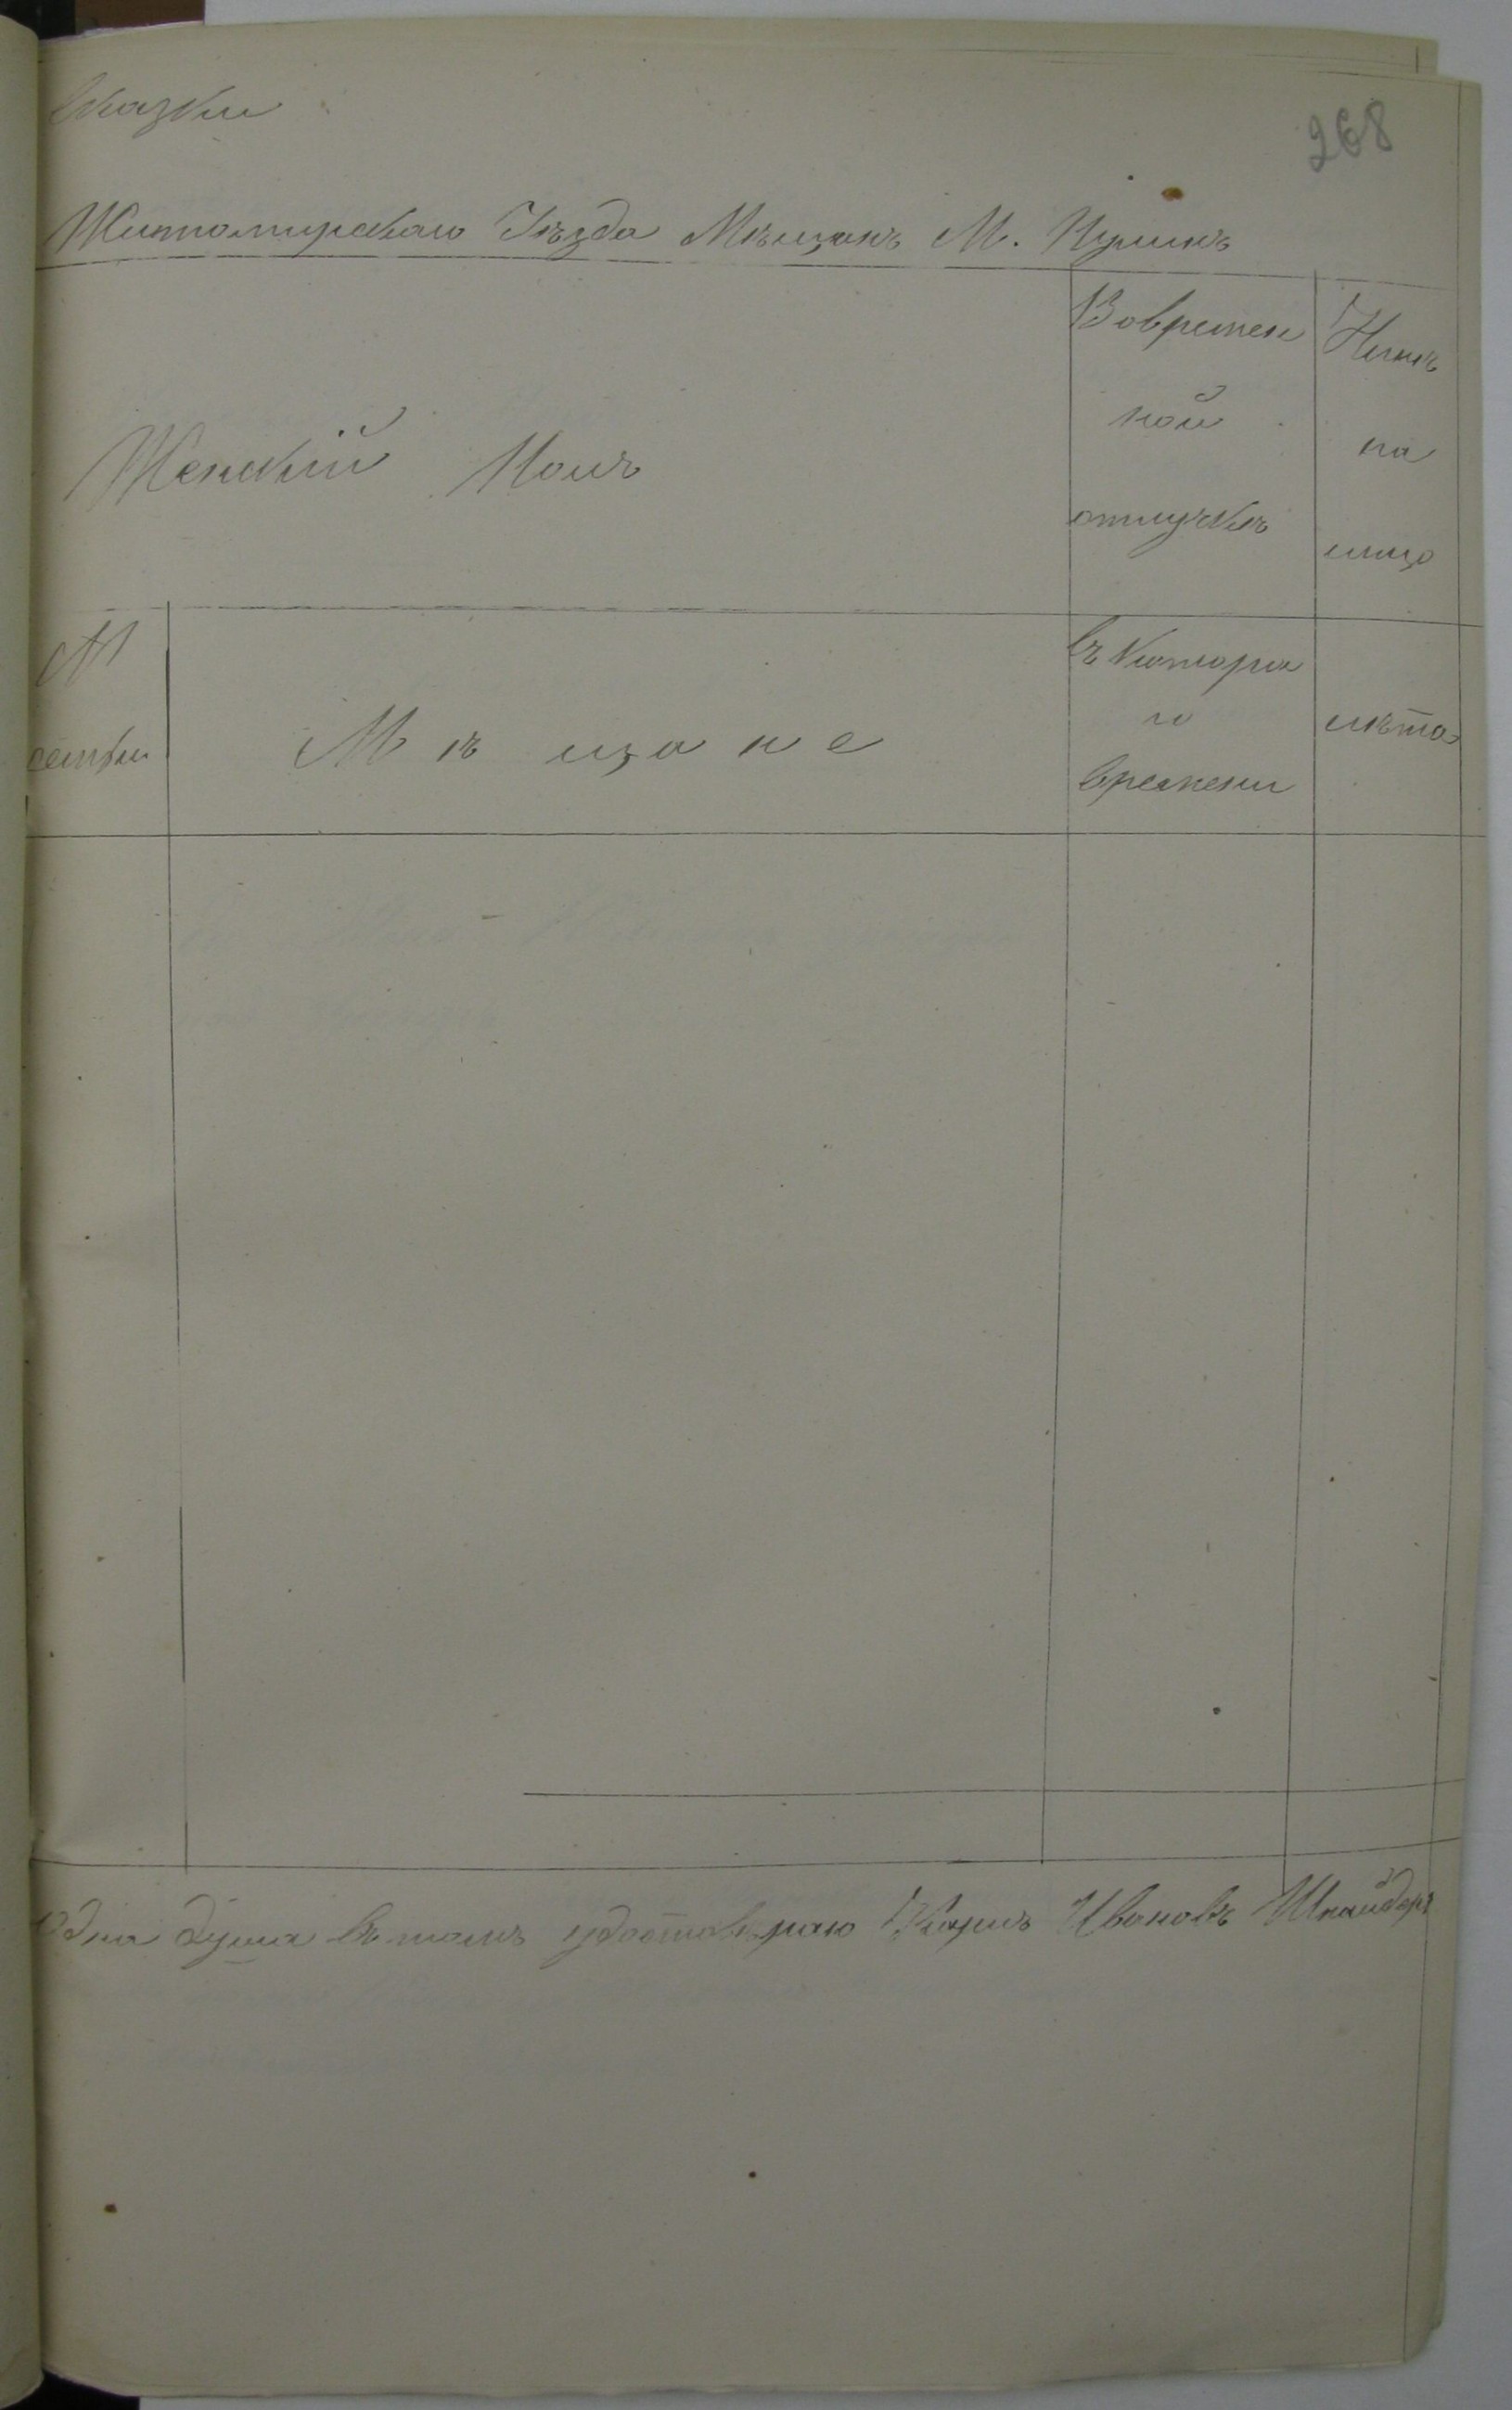 Сказки
268
Житомирскаго Уѣзда Мѣщанъ М. Пулинъ
Женскій Полъ
Вовремен
ной
отлучкѣ
Нынѣ
на
лицо
№
семьи
Мѣщане
съ котора
го
времени
лѣта
Одна душа въ томъ удостовѣряю Карлъ Ивановъ Шнайдеръ